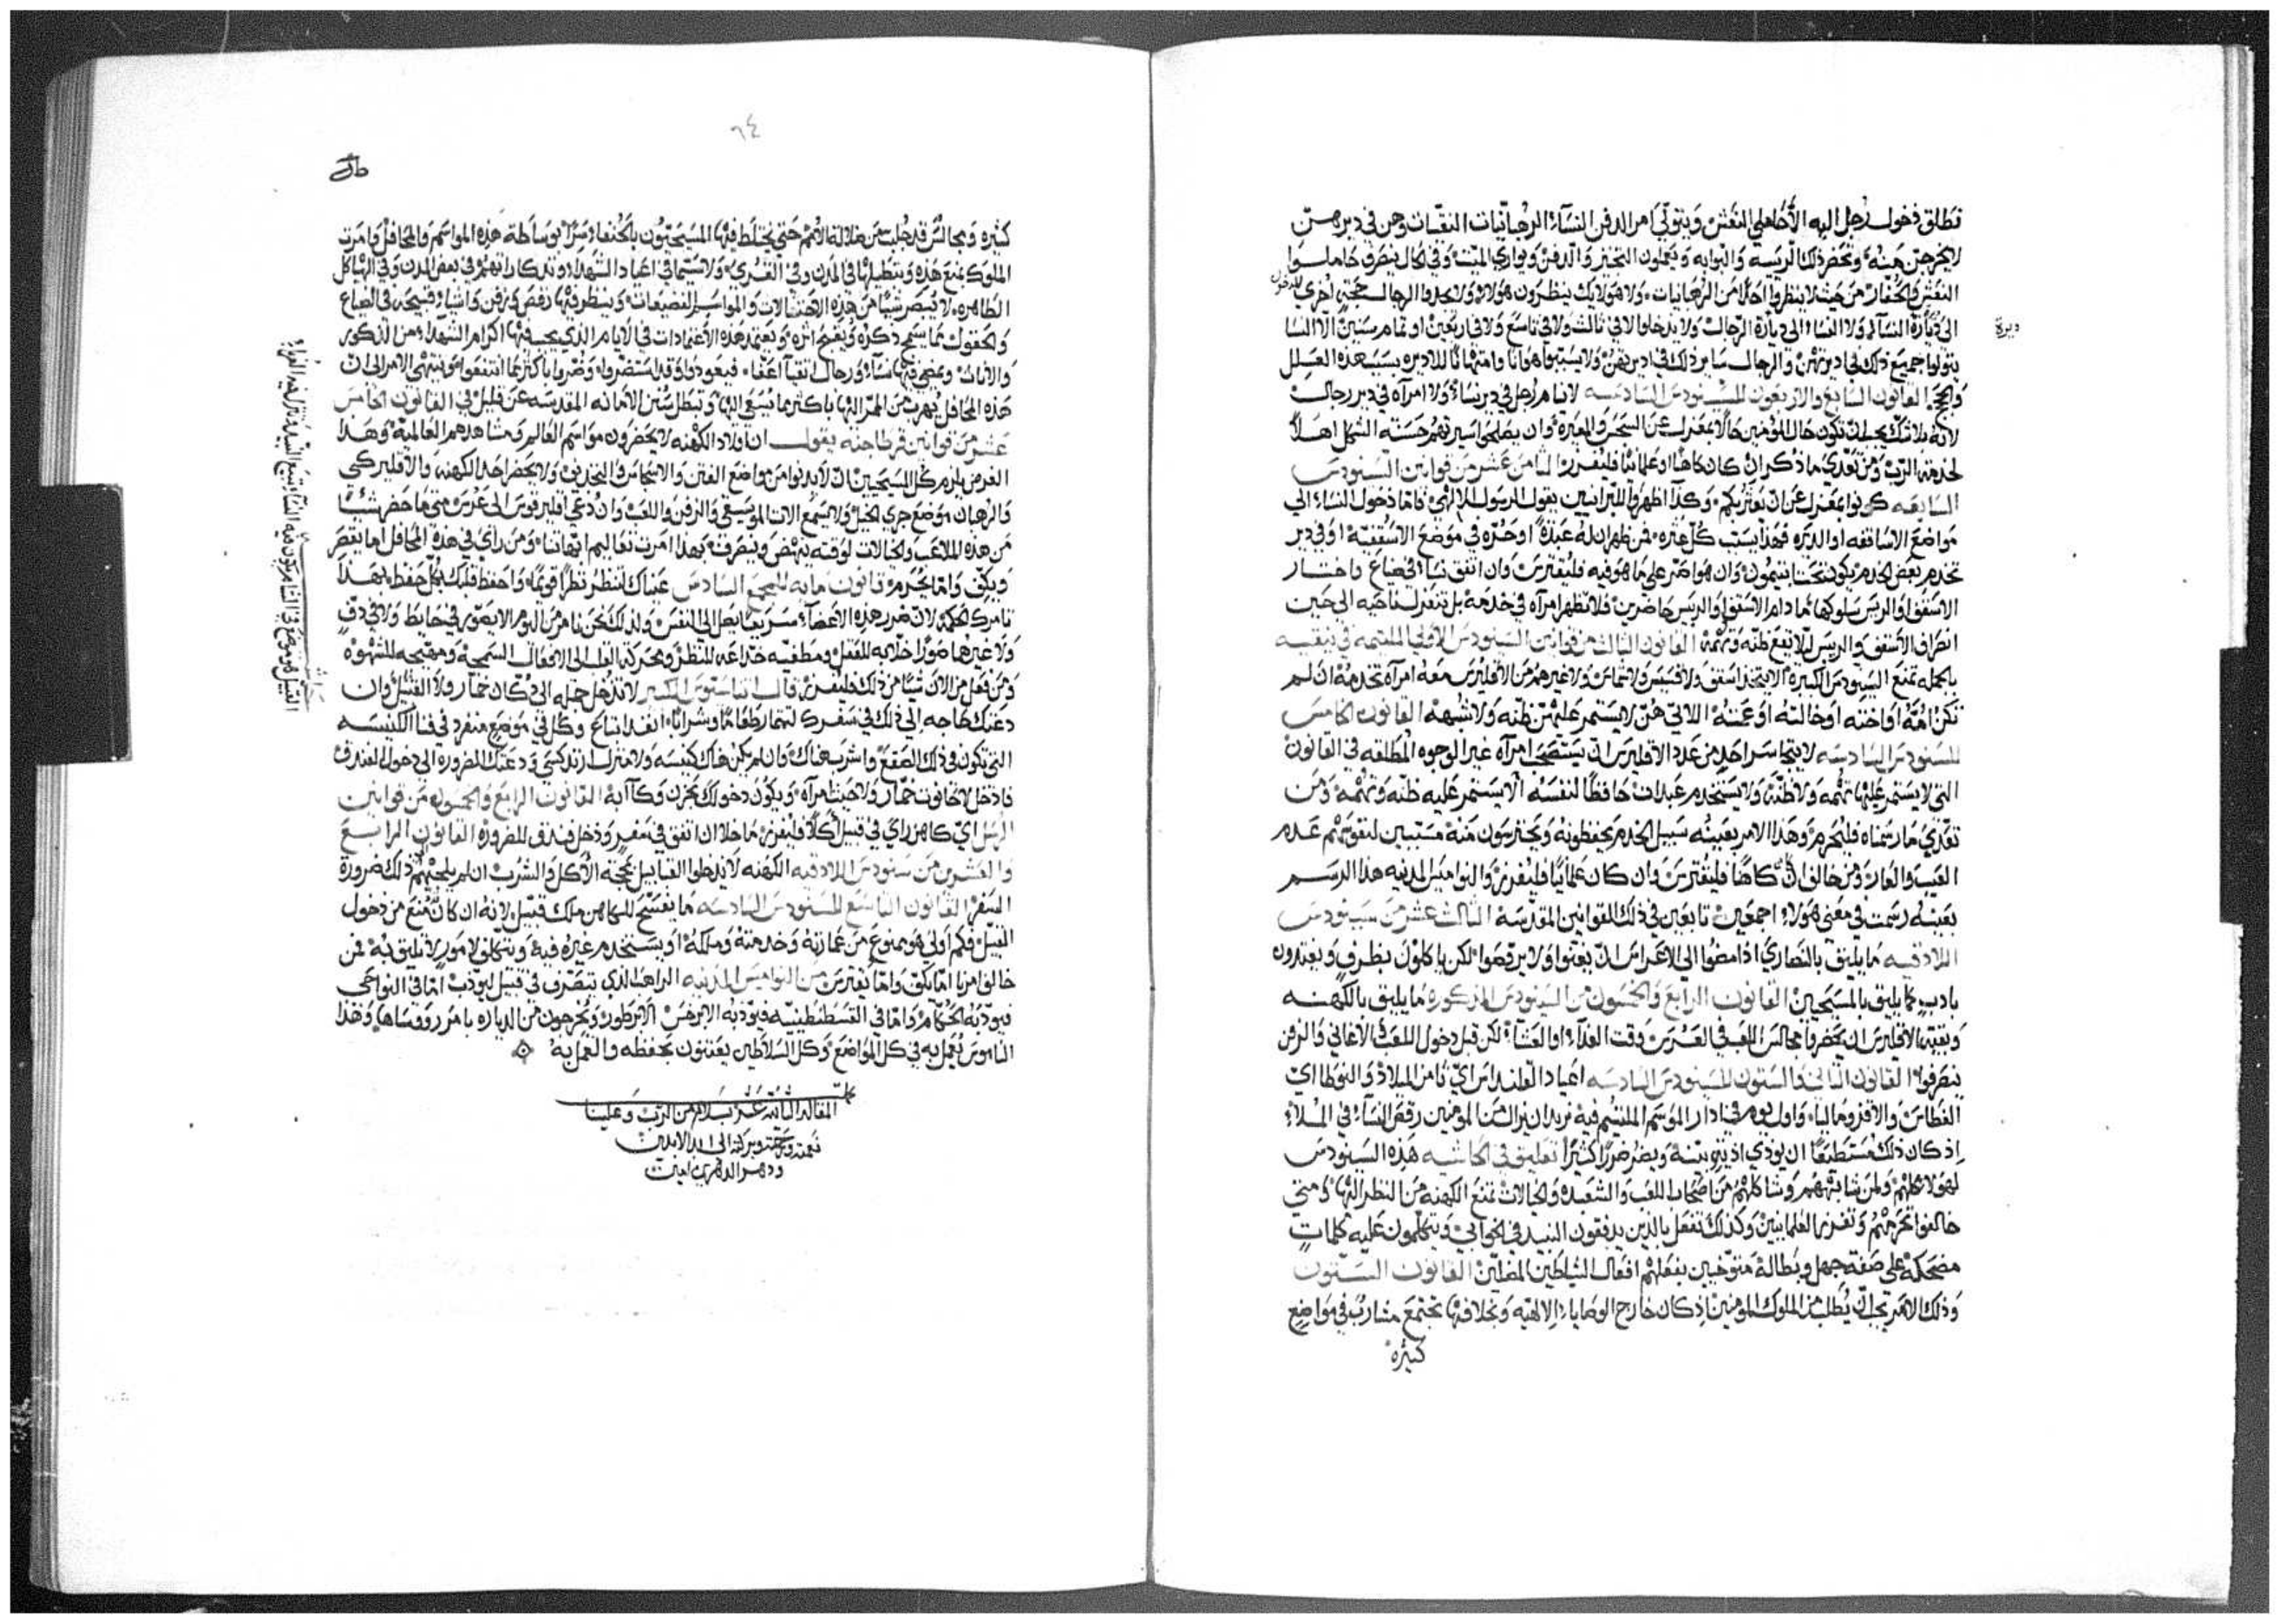 تطلق دخول رجل اليه الا حاملي النعش ويتولي امر الدفن النسآء الرهبانيات النقيات وهن في ديرهن
لا يخرجن منه وتحضر ذلك الريسه والبوابه ويعملون التجنيز والدفن ويواري الميت وفي الحال ينصرف حاملوا
النعش والحفار من حيث لا ينظروا احدًا من الرهبانيات ولا هولايك ينظرون هولاء ولا يجدوا الرجال حجة اخري للدخول
الى ديارة النسآء ولا النساء الى ديارة الرجال ولا يدخلوا لا في ثالث ولا في تاسع ولا في اربعين او تمام سنين الا النسا
ديرة
يتولوا جميع ذلك في ديرتهن والرجال ساير ذلك في اديرتهن ولا يسببوا هوانا وامتهانا للاديره بسبب هذه العلل
والحجج القانون السابع والاربعون للسنودس السادسه لا ينام رجل في دير نساء ولا امرآه في دير رجال
لانه بلا شك يجب ان تكون حال المؤمنين حالا بمعزل عن السجس والعثرة وان يصلحوا سيرتهم حسنة الشكل اهلاً
لخدمة الرب ومن تعدي ما ذكر ان كان كاهنا او علمانيا فليفرز الثامن عشر من قوانين السنودس
السابعه كونوا بمعزل عن ان يعثر بكم وكذا اظهروا للبرانيين يقول الرسول الالهي فاما دخول النساء الي
مواضع الاساقفه او الديره فهذا يسبب كل عثره فمن ظهر ان له عبدةً او حرّه في موضع الاسقفيه او في دير
تخدم بعض الخدم يكون تحت ابتيمون وان هو اصر علي ما هو فيه فليقترس وان اتفق نساء في ضياع واختار
الاسقف او الريس سلوكها فما دام الاسقف او الريس حاضرين فلا تظهر امرآه في خدمة بل تنعزل ناحيه الى حين
انصراف الاسقف والريس ليلا يقع ظنه وتهمة القانون الثالث من قوانين السنودس الاولي الملتيمه في نيقيه
بالجمله تمنع السنودس الكبيره الا يتخذ اسقف ولا قسيس ولا شماس ولا غيرهم من الاقليرس معه امرآه تخدمه ان لم
تكن امه او اخته او خالته او عمته اللاتي هن لا يستمر عليهن ظنه ولا شبهة القانون الخامس
للسنودس السادسه لا يتجاسر احد من عدد الاقليرس ان يستصحب امرآه غير الوجوه المطلقه في القانون
التي لا يستمر عليها تهمه ولا ظنه ولا يستخدم عبدات حافظًا لنفسه الا يستمر عليه ظنه وتهمة ومن
تعدي ما رسمناه فليجرم وهذا الامر بعينه سبيل الخدم يحفظونه ويحترسون منه مسببين لنفوسهم عدم
العيب والعار ومن خالف ان كاهنا فليقترس وان كان علمانيًا فليفرز والنواميس المدنيه هذا الرسم
بعينه رسمت في معني هولاء اجمعين تابعين في ذلك للقوانين المقدسة الثالث عشر من سينودس
اللادقيه ما يليق بالنصاري اذا مضوا الي الاعراس ان يغنوا ولا يرقصوا لكن ياكلون بظرف ويغتدون
بادب كما يليق بالمسيحيين القانون الرابع والخمسون من السينودس المذكورة ما يليق بالكهنه
وبقية الاقليرس ان يحضروا مجالس اللعب في العرس وقت الغدآء او العشآء لكن قبل دخول اللعب والاغاني والزفن
ينصرفوا القانون الثاني والستون للسينودس السادسه اعياد القلنداس اي ثامن الميلاد والنوطا اي
الغطاس والافرومالياء واول يوم في ادار الموسم الملتيم فيه نريد ان نزال من المومنين رقص النسآء في الملاء
اذ كان ذلك مستطيعًا ان يوذي اذية بينة ويضر ضررًا كثيرًا تعليق في الحاشيه هذه السينودس
لهولاء كلهم ولمن شابههم وشاكلهم من اصحاب اللعب والشعبده والخيالات تمنع الكهنه من النظر اليها ومتي
خالفوا تحرمهم وتفرز العلمانيين وكذلك تفعل بالذين يدفقون النبيد في الخوابي ويتكلمون عليه كلمات
مضحكة علي صفة جهل وبطالة متوخين بفعلهم افعال الشياطين المضلين القانون الستون
وذلك الامر يجب ان يطلب من الملوك المومنين اذ كان خارج الوصاياء الالهيه وبخلافها تجتمع مشارب في مواضع
كثيره
٦٤
كثيره ومجالس قد جلبت من ضلالة الامم حتي يختلط فيها المسيحيون بالحنفاء سرًا بوساطة هذه المواسم والمحافل وامرت
الملوك بمنع هذه وتبطيلها في المدن وفي القري ولا سيما في اعياد الشهداء وتدكاراتهم في بعض المدن وفي الهياكل
الطاهره لا يبصر شيًا من هذه الاحتفالات والمواسم الفضيعات وينظر فيها رقص وزفن واشياء قبيحه في الضياع
والحقول مما يسمج ذكره ويقبح اثره ويعتمد هذه الاعتمادات في الايام الذي يجب فيها اكرام الشهداء من الذكور
والاناث ويمضي فيها نساء ورجال اتقيآ اعفّاء فيعودوا وقد استضروا وضروا باكثر مما انتفعوا وينتهي الامر الى ان
هذه المحافل يهرب من الممر اليها باكثر مما يسعي اليها وتبطل سنن الامانه المقدسه عن قليل في القانون الخامس
عشر من قوانين قرطاجنه يقول ان اولاد الكهنه لا يحضرون مواسم العالم ومشاهدهم العالمية وهذا
الغرض يلزم كل المسيحيين ان لا يدنوا من مواضع الفتن والانجاس والتجديف ولا يحضر احد الكهنه والاقليركي
والرهبان موضع جري الخيل ولا يسمع الات الموسيقي والزفن واللعب وان دعي اقليرقوس الى عرس متي ما حضر شيئًا
من هذه الملاعب والخيالات لوقته ينهض وينصرف بهذا امرت تعاليم ابهاتنا ومن راي في هذه المحافل اما يقصر
ويكف واما يجرم قانون مايه للمجمع السادس عيناك لتنظر نظرًا قويمًا واحفظ قلبك بكل حفظ بهذا
تامرك الحكمة لان ضرر هذه الاعضآء سريعا يصل الى النفس ولذلك نحن نامر من اليوم الا يصور في حايط ولا في دف
ولا غيرها صورًا خلابه للعقل ومطغيه خداعه للنظر ومحركة القلب الى الافعال السمجه ومهيجه للشهوة
ومن فعل من الان شيًا من ذلك فليفرز قال اثناسيوس الكبير لا تدخل جمله الى دكان خمار ولا الفتيل وان
دعتك حاجه الي ذلك في سفرك لتمتار طعامًا وشرابًا انفد ابتاع وكل في موضع منفرد في فنا الكنيسه
التي تكون في ذلك الصقع واشرب هناك وان لم يكن هناك كنيسه ولا منزل ارتدكسي ودعتك الضروره الى دخول الفندق
فادخل لا حانوت خمار ولا حيث امرآه ويكون دخولك بحزن وكآبة القانون الرابع والخمسون من قوانين
الرسل اي كاهن راي في قبيل آكلا فليفرز ما خلا ان اتفق في سفر ودخل فندق للضرورة القانون الرابع
والعشرين من سنودس اللادقيه الكهنه لا يدخلوا القبابيل بحجة الاكل والشرب ان لم يلجيهم ذلك ضرورة
السفر القانون التاسع للسنودس السادسه ما يفسح للكاهن ملك قبيل لانه ان كان منع من دخول
القبيل فكم اولي هو ممنوع من عمارته وخدمته وملكه او يستخدم غيره فيه ويتكلف لامور لا تليق به فمن
خالف امرنا اما يكف واما يقترس من النواميس المدنيه الراهب الذي يتصرف في قبيل ليودب اما في النواحي
فيودبه الحكام واما في القسطنطينيه فيودبه الابرخس الابرطور ويخرجون من الدياره بامر رووساها وهذا
الناموس يُعمل به في كل المواضع وكل السلاطين يعتنون بحفظه والعمل به
كملت
المقاله الثانيه عشر بسلام من الرب وعلينا
نعمته ورحمته وبركته الى ابد الابدين
ودهر الداهرين امين